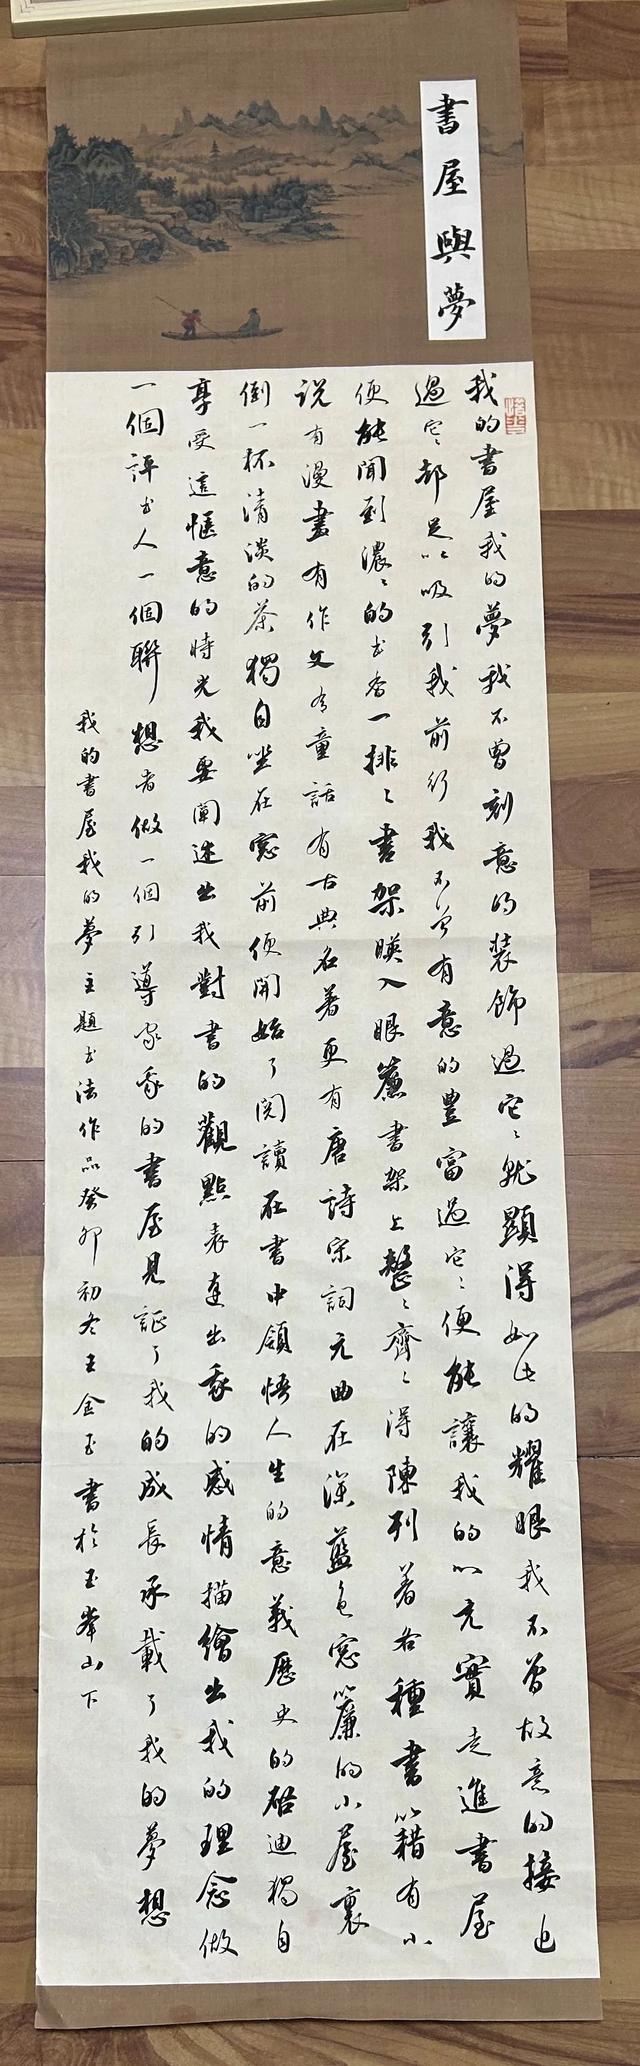 書屋與夢
我的書屋我的夢我不曾刻意的装飾過它〻就顯得如此的耀眼我不曾故意的接近
過它〻都足以吸引我前行我不曾有意的豊富過它〻便能讓我的心充實走進書屋
便能聞到濃〻的书香一排〻書架映入眼簾書架上整〻齊〻得陳列着各種書籍有小
说有漫畫有作文有童話有古典名著更有唐詩宋詞元曲在深藍色窓簾的小屋裏
倒一杯清淡的茶獨自坐在窓前便開始了閱讀在書中領悟人生的意義歷史的啓迪獨自
享受這惬意的時光我要闡述出我對書的觀點表達出我的感情描繪出我的理念做
一個評书人一個聯想者做一個引導家我的書屋見証了我的成長承載了我的夢想
我的書屋我的夢主題书法作品癸卯初冬王金玉書於玉峯山下